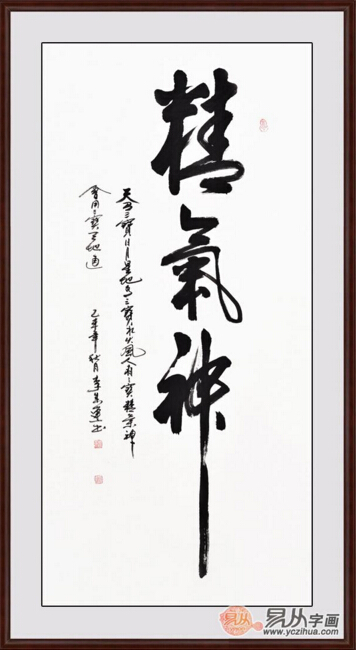 精氣神
天有三寶日月星地有三寶水火風人有三寶精氣神
會用三寶天地通
年秋月李成連书
易从字画
www.yczihua.com